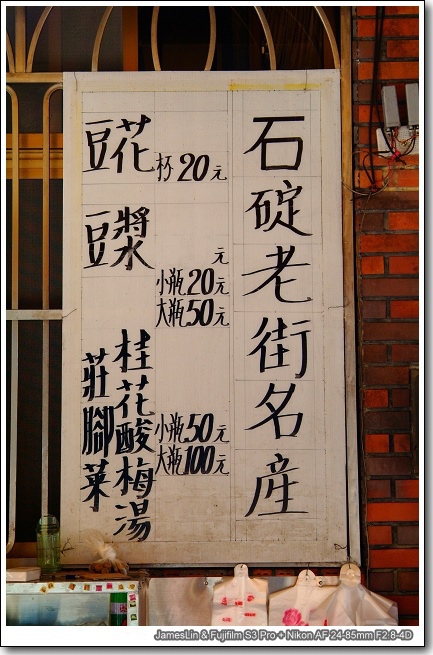 石碇老街名産
豆花 杯20元
豆漿
元
小瓶20元
大瓶50元
桂花酸梅湯
小瓶50元
大瓶100元
莊腳菜
JamesLin & Fujifilm S3 Pro + Nikon AF 24-85mm F2.8-4D